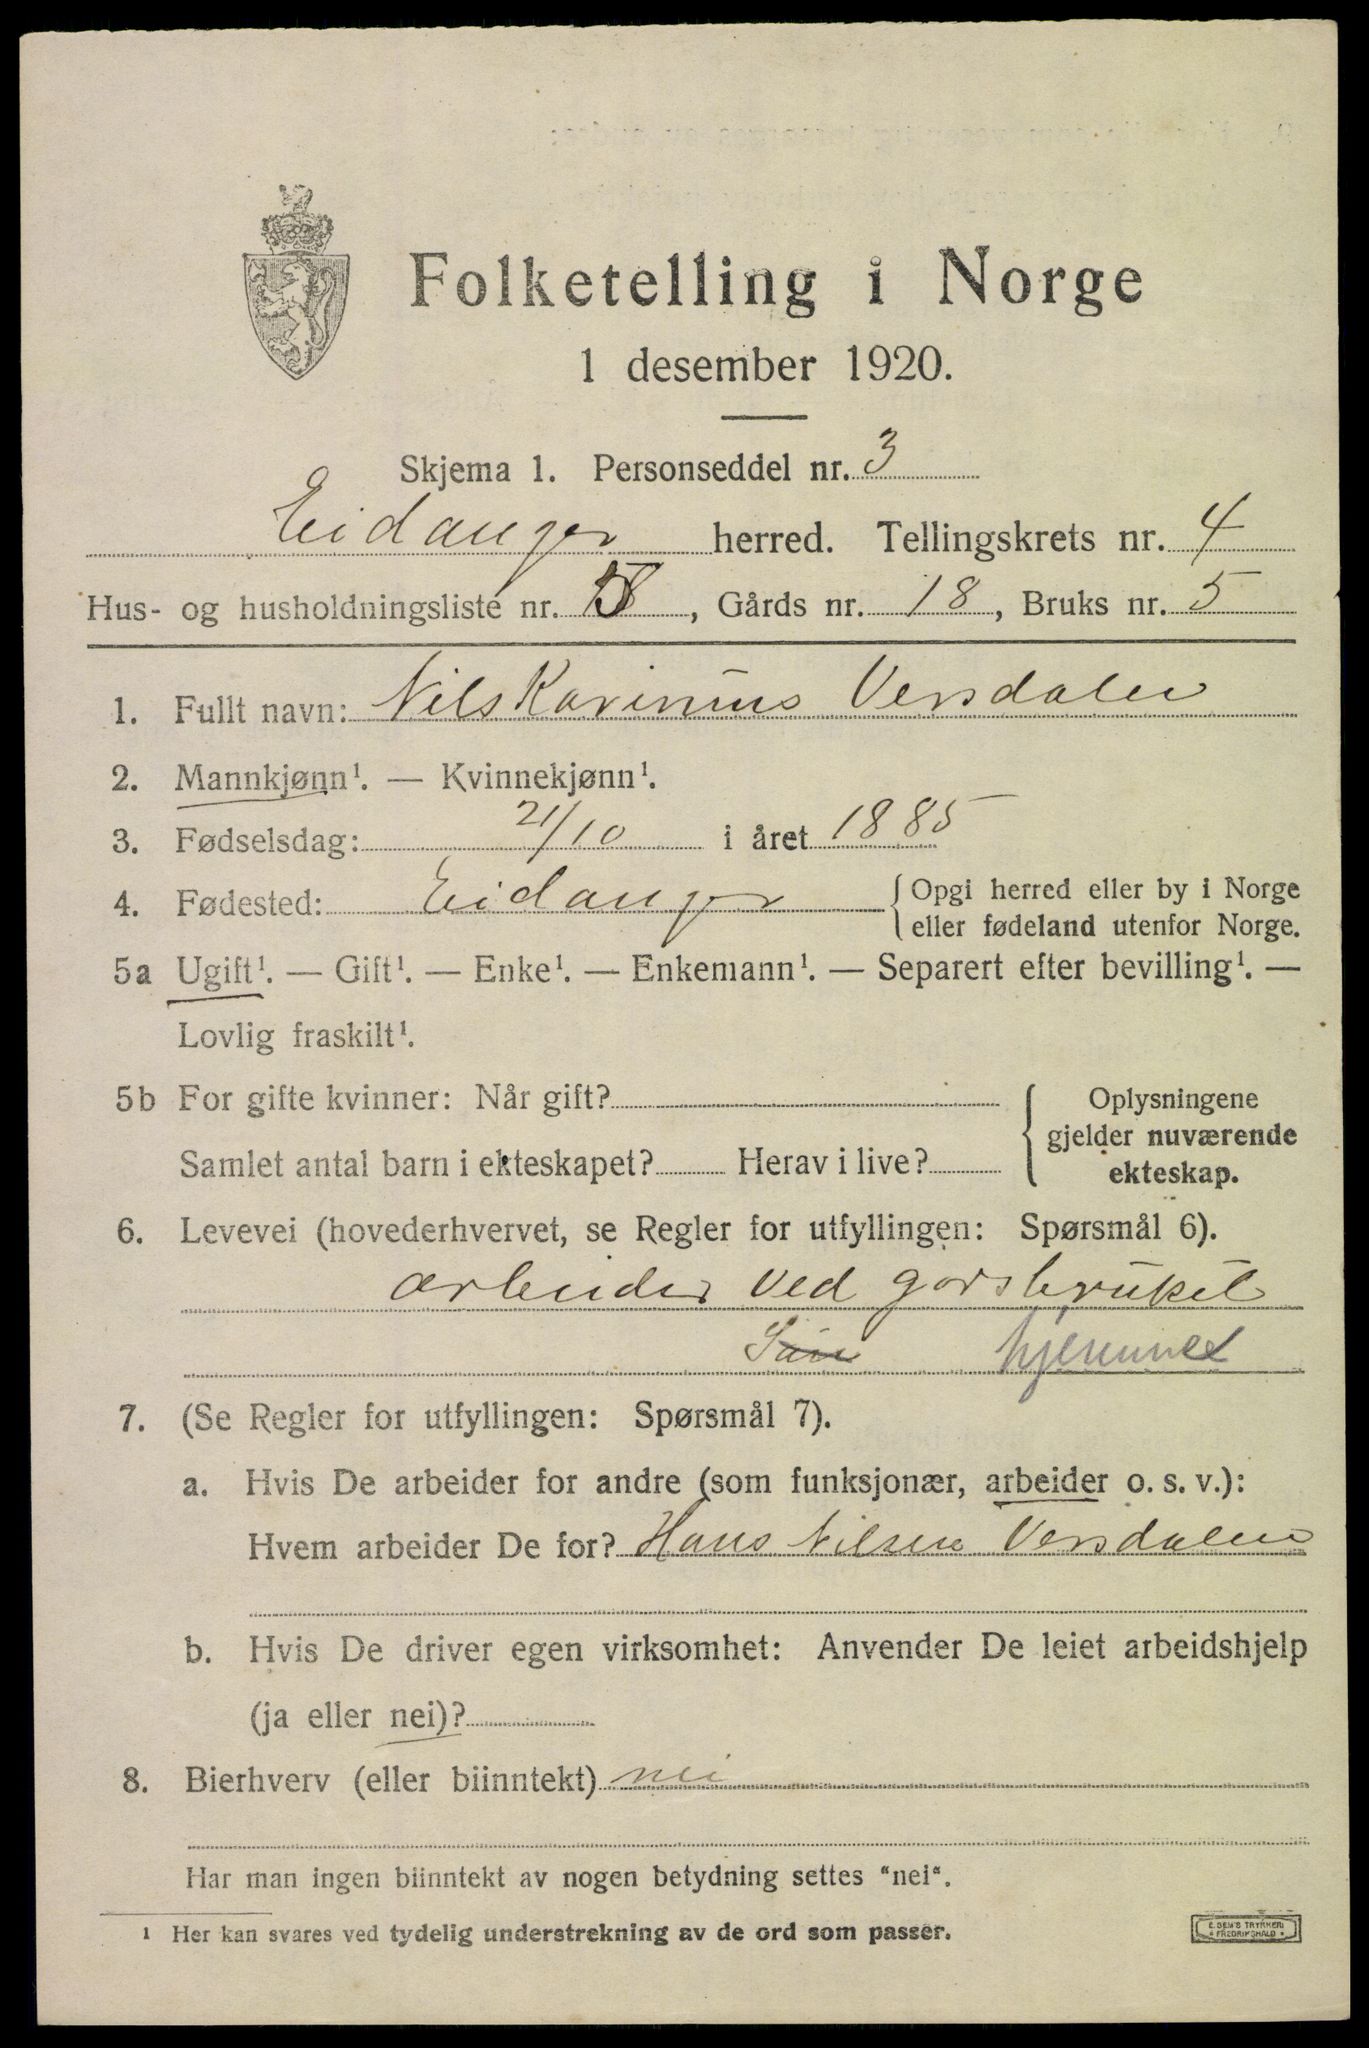 Folketelling i Norge
1 desember 1920.
Skjema 1. Personseddel nr. 3
Eidanger herred. Tellingskrets nr. 4
Hus- og husholdningsliste nr. 58, Gårds nr. 18, Bruks nr. 5
1. Fullt navn: Nils Karinius Versdalen
2. Mannkjønn¹. — Kvinnekjønn¹.
3. Fødselsdag: 21/10 i året 1885
4. Fødested: Eidanger { Opgi herred eller by i Norge
eller fødeland utenfor Norge.
5a Ugift¹. — Gift¹. — Enke¹. — Enkemann¹. — Separert efter bevilling¹. —
Lovlig fraskilt¹.
5b For gifte kvinner: Når gift?
Samlet antal barn i ekteskapet? Herav i live?
Oplysningene
gjelder nuværende
ekteskap.
6. Levevei (hovederhvervet, se Regler for utfyllingen: Spørsmål 6).
arbeider ved gårsbruket
Søn hjemmet
7. (Se Regler for utfyllingen: Spørsmål 7).
a. Hvis De arbeider for andre (som funksjonær, arbeider o. s. v.):
Hvem arbeider De for? Hans Nilsen Versdalen
b. Hvis De driver egen virksomhet: Anvender De leiet arbeidshjelp
(ja eller nei)?
8. Bierhverv (eller biinntekt) nei
Har man ingen biinntekt av nogen betydning settes "nei".
¹ Her kan svares ved tydelig understrekning av de ord som passer.
E. SEM'S TRYKKERI
* FREDRIKSHALD *